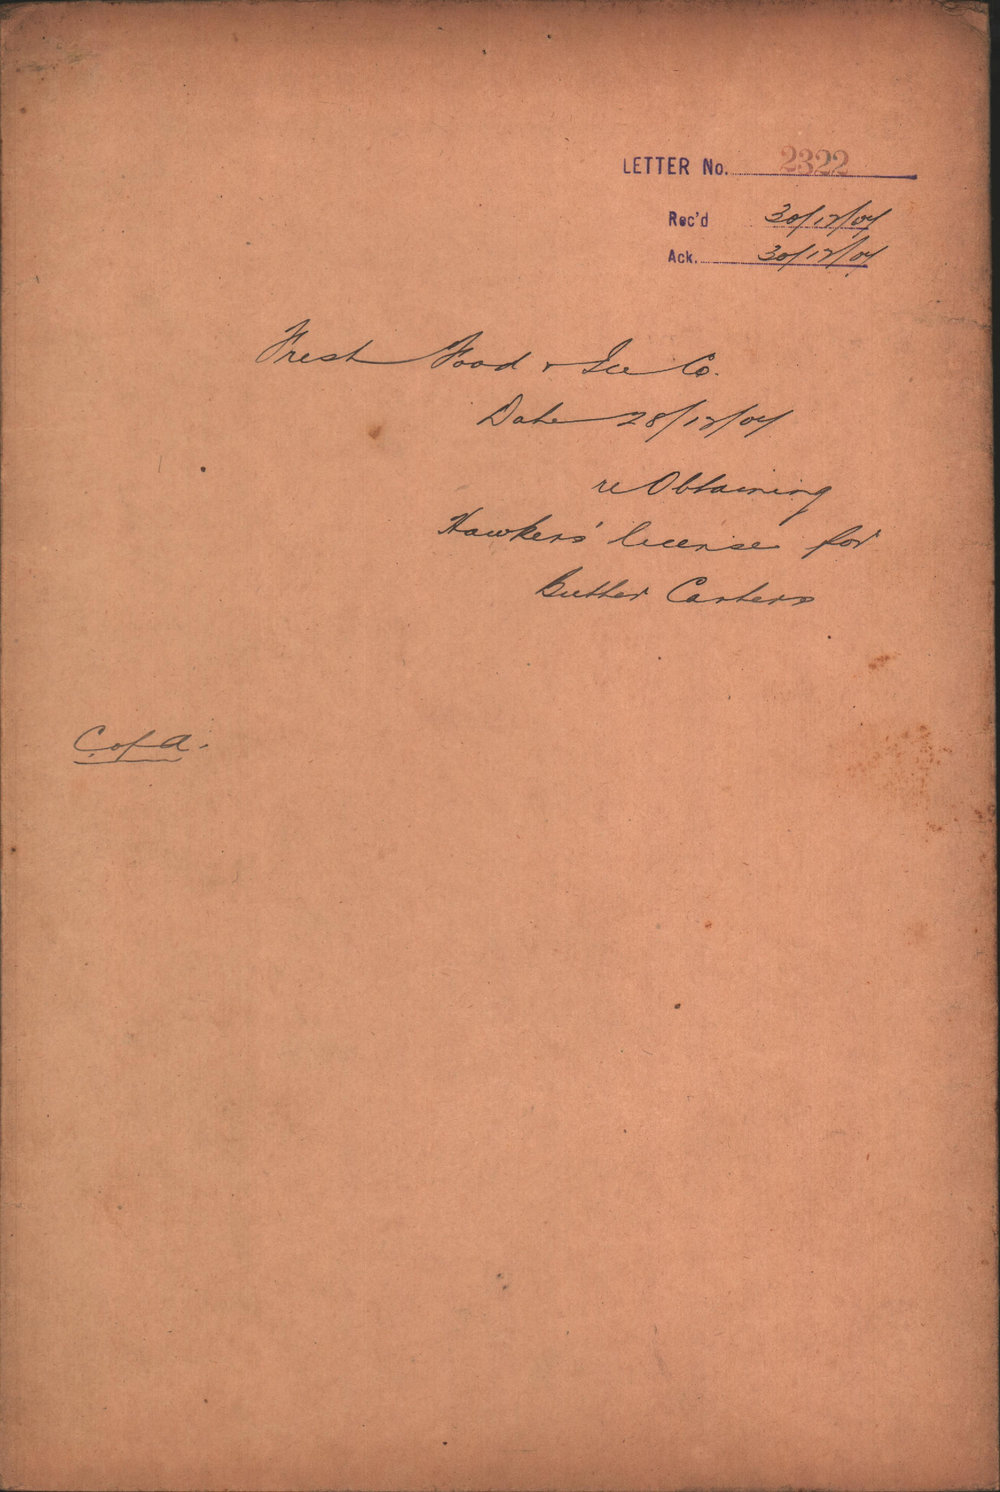 LETTER No. 2322
Rec'd 30/12/04
Ack. 30/12/04
Fresh Food & Ice Co.
Date 28/12/04
re Obtaining
Hawkers' license for
Butter Carters
C. of A.